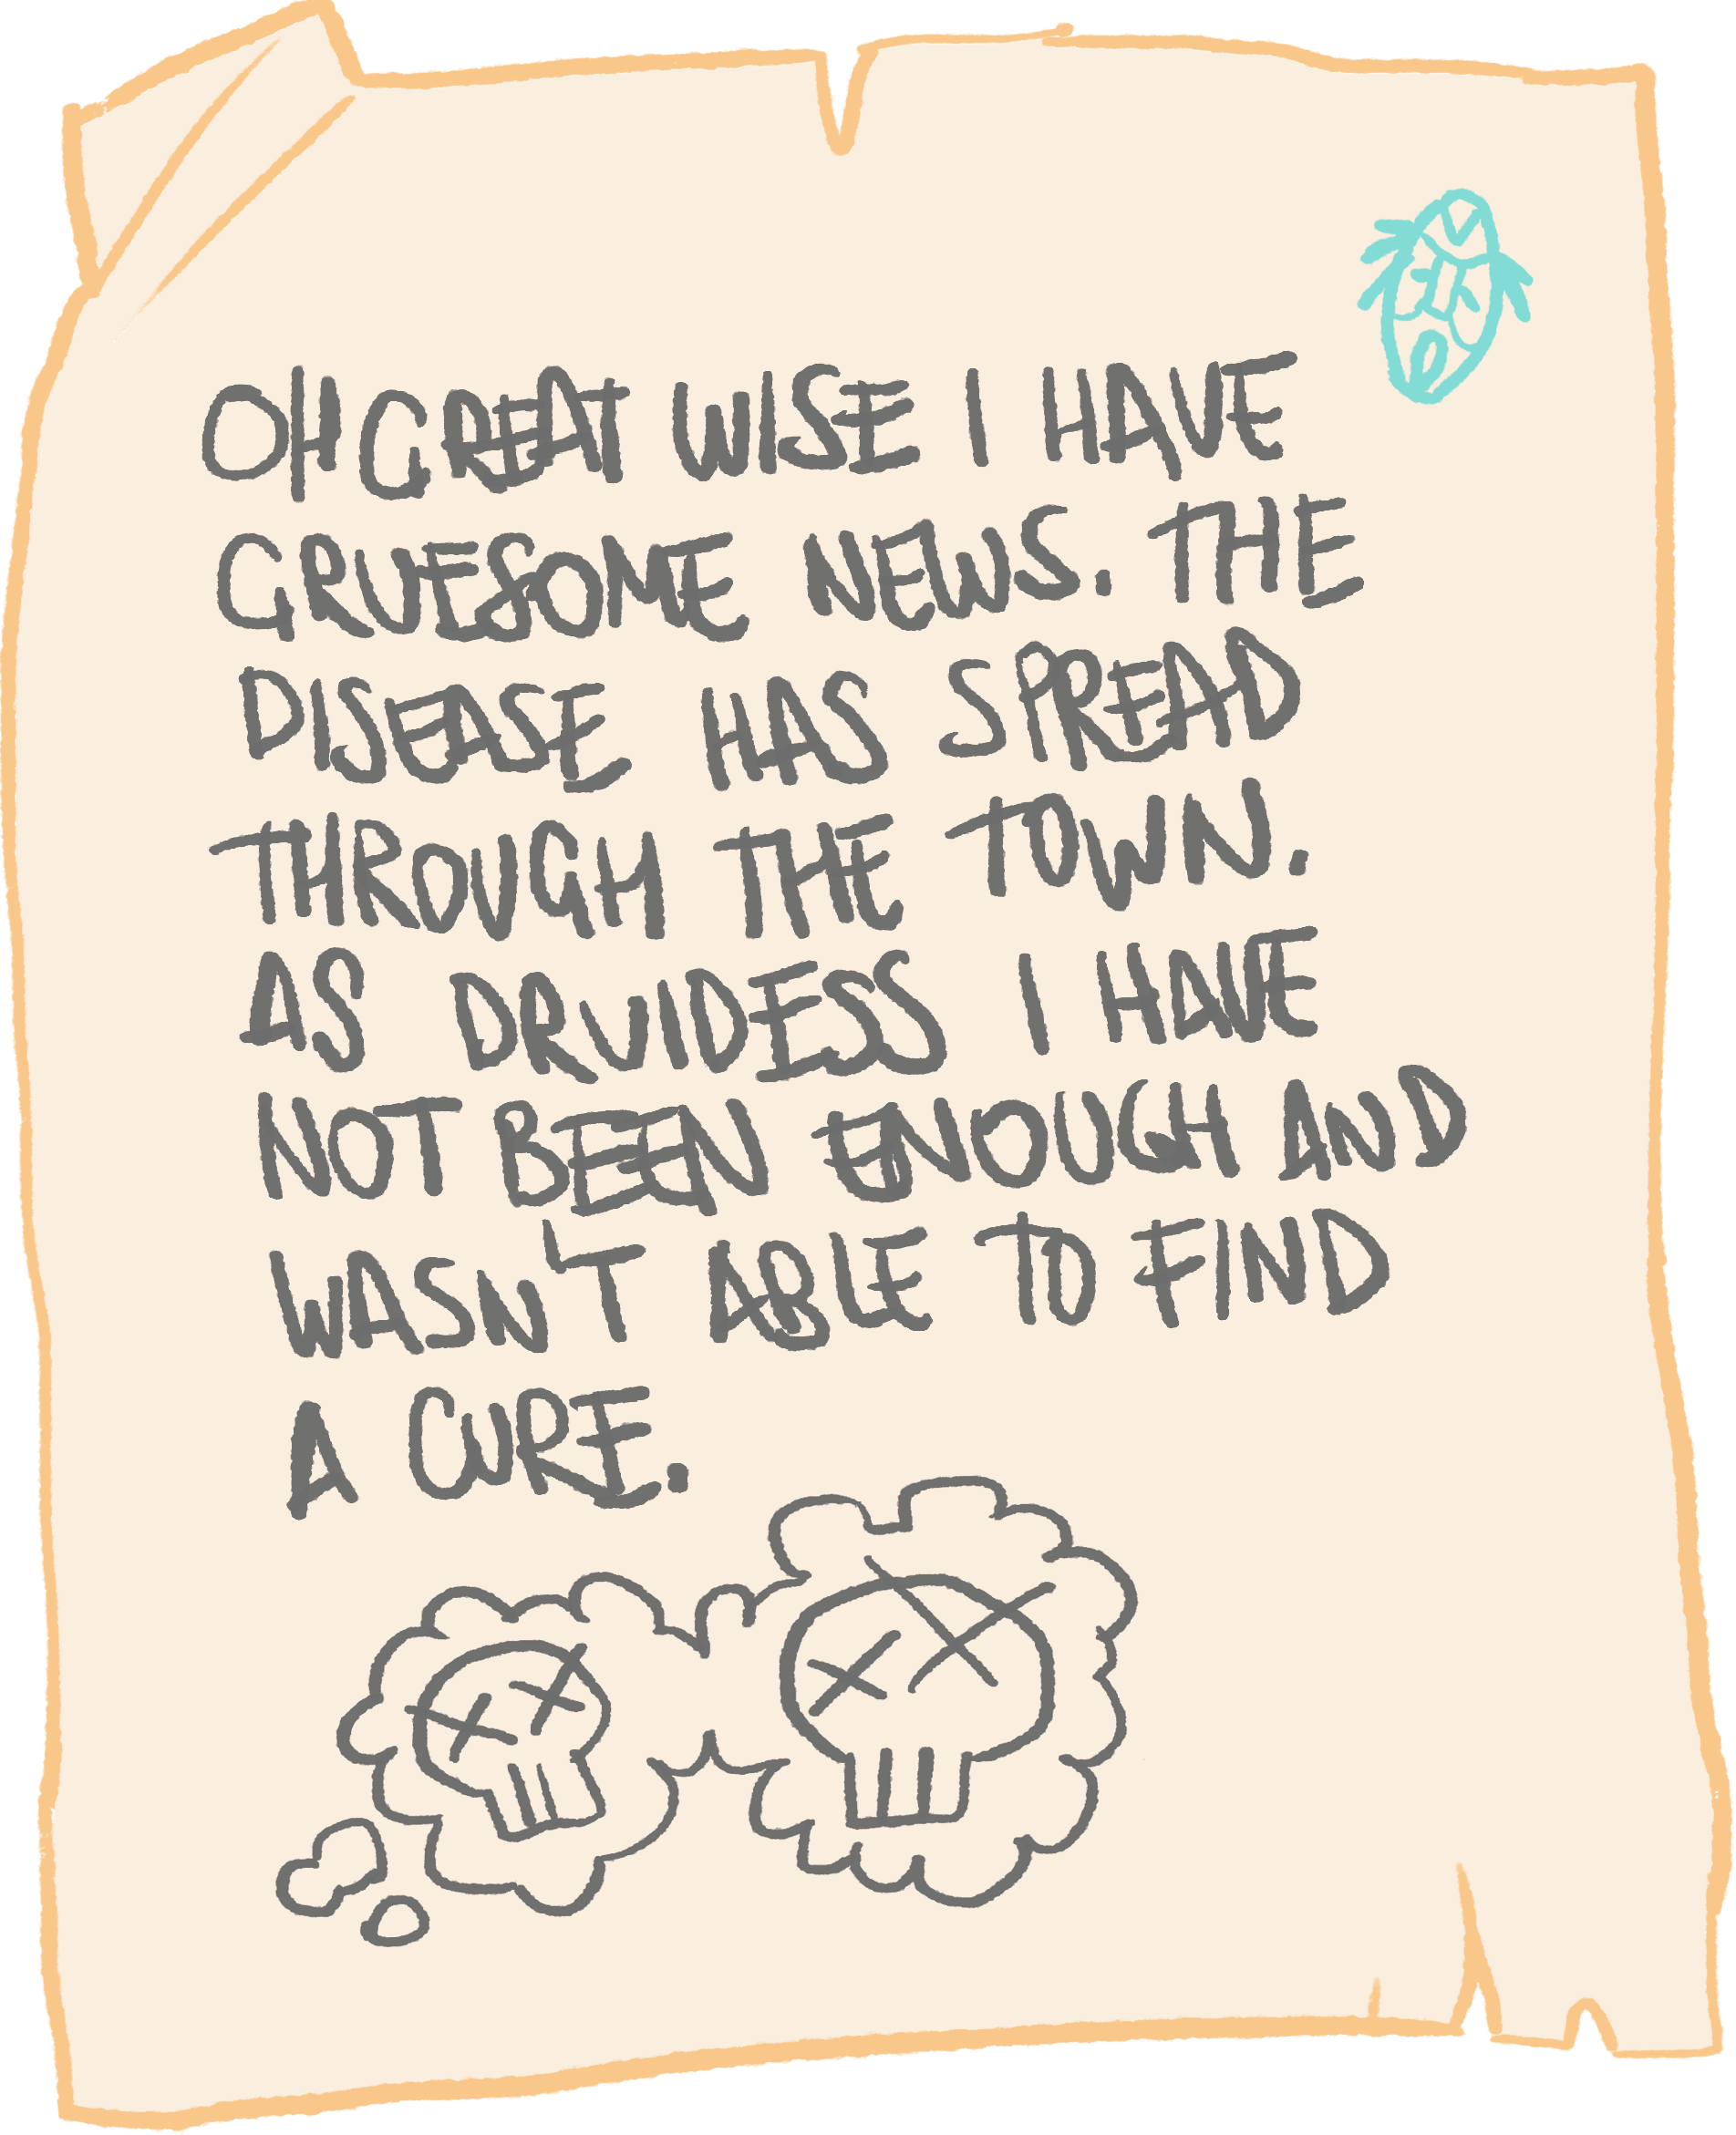 OH GREAT WISE I HAVE
GRUESOME NEWS. THE
DISEASE HAS SPREAD
THROUGH THE TOWN.
AS DRUIDESS I HAVE
NOT BEEN ENOUGH AND
WASN'T ABLE TO FIND
A CURE.